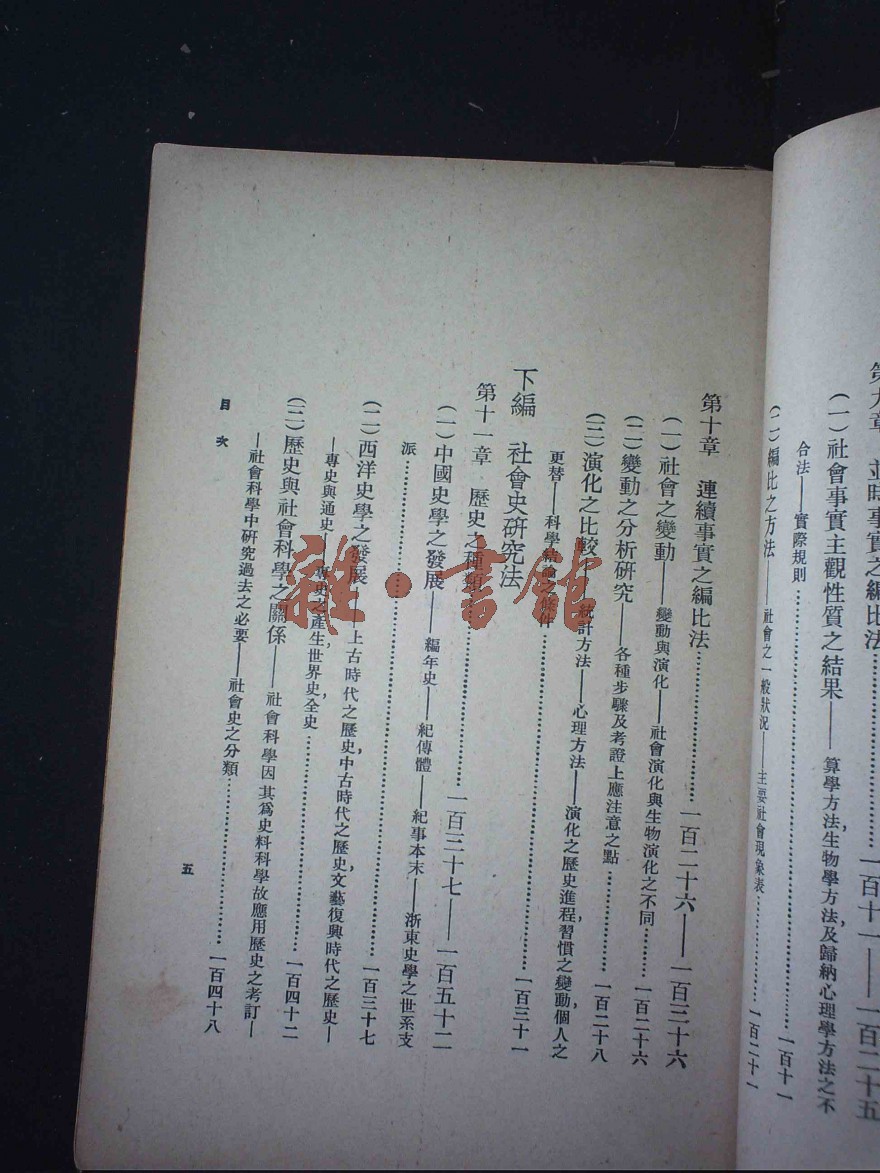 第九章　並時事實之編比法……一百十一——一百二十五
（一）社會事實主觀性質之結果——算學方法，生物學方法，及歸納心理學方法之不
合法——實際規則……一百十一
（二）編比之方法——社會之一般狀況——主要社會現象表……一百二十一
第十章　連續事實之編比法……一百二十六——一百三十六
（一）社會之變動——變動與演化——社會演化與生物演化之不同……一百二十六
（二）變動之分析研究——各種步驟及考證上應注意之點……一百二十八
（三）演化之比較——統計方法——心理方法——演化之歷史進程，習慣之變動，個人之
更替——科學結論之條件……一百三十一
下編　社會史研究法
第十一章　歷史之種類……一百三十七——一百五十二
（一）中國史學之發展——編年史——紀傳體——紀事本末——浙東史學之世系支
派……一百三十七
（二）西洋史學之發展——上古時代之歷史，中古時代之歷史，文藝復興時代之歷史——
——專史與通史——專史之產生，世界史，全史……一百四十二
（三）歷史與社會科學之關係——社會科學因其為史料科學故應用歷史之考訂——
——社會科學中研究過去之必要——社會史之分類……一百四十八
目次
五
雜·書館